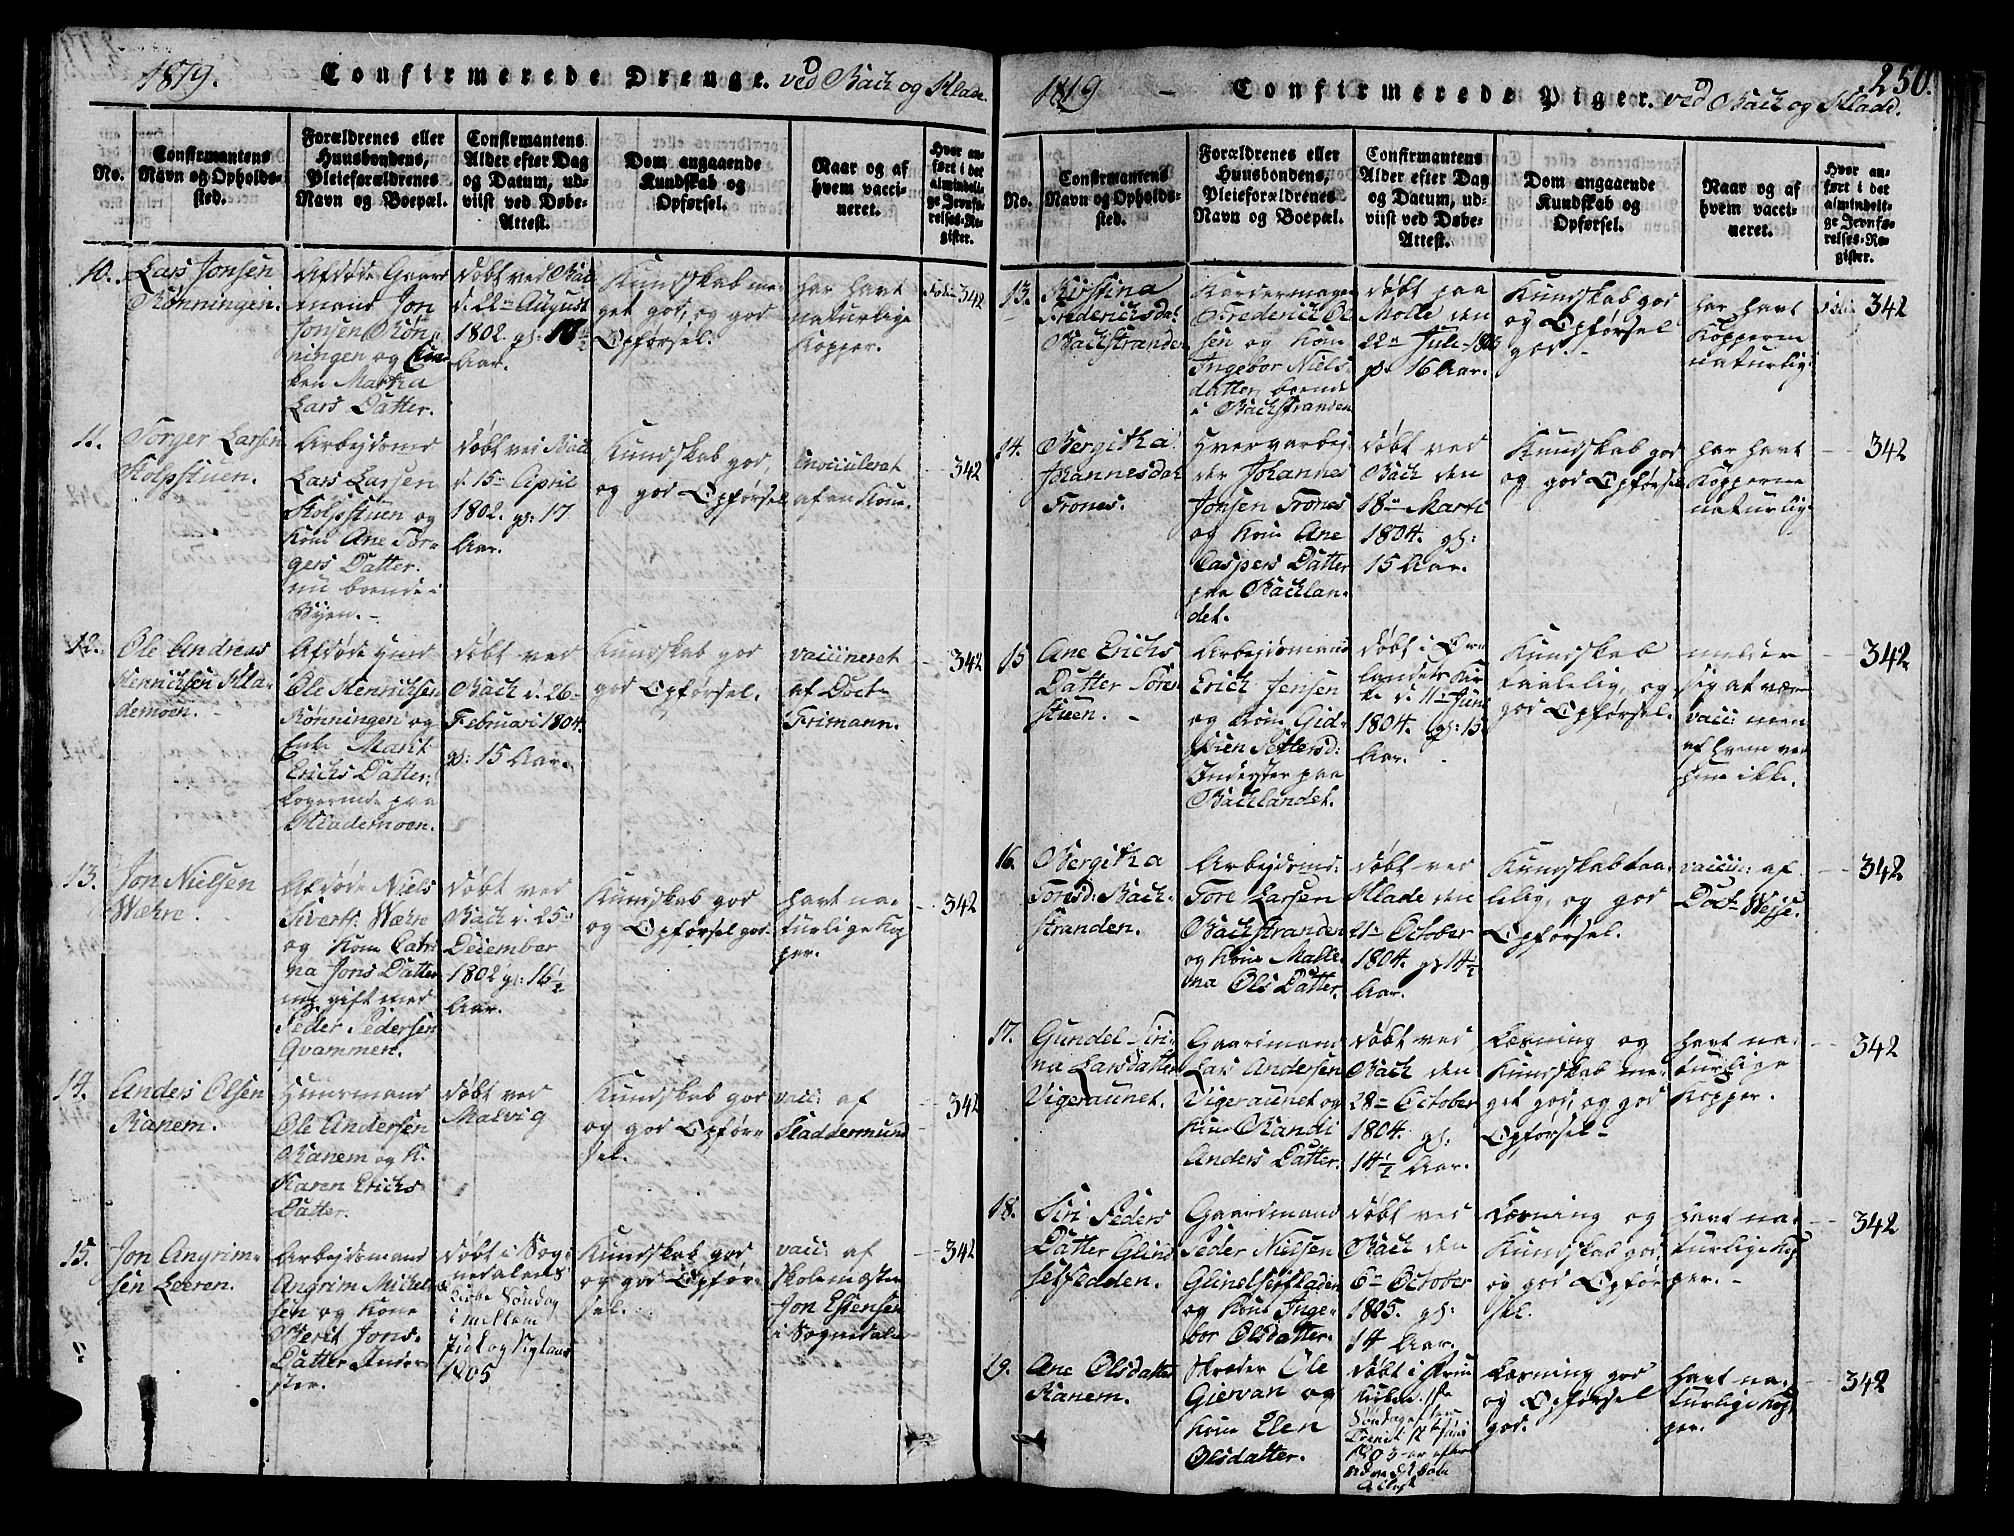 1819. Confirmerede Drenge. ved Bach og Hlade.
No.
Confirmantens
Navn og Opholds-
sted.
Forældrenes eller
Huusbondens,
Pleieforældrenes
Navn og Boepæl.
Confirmantens
Alder efter Dag
og Datum, ud-
viist ved Døbe-
Attest.
Dom angaaende
Kundskab og
Opførsel.
Naar og af
hvem vacci-
neret.
Hvor an-
ført i det
almindeli-
ge Jevnfø-
relses-Re-
gister.
10.
Lars Jonsen
Rønningen.
Afdøde Gaard
mand Jon
Jonsen Røn-
ningen og
Martha
Lars Datter.
døbt ved Bach
d. 22de August
1802. gl:
Aar.
Kundskab me-
get god, og god
Opførsel.
har havt
naturlige
Kopper.
342
11.
Torger Larsen
Kolpstuen.
Arbejdsmd
Lars Larsen
Kolpstuen og
Kone Ane Tor-
gers Datter.
nu boende i
Byen.
døbt ved Bach
d. 15de April
1802. gl: 17
Aar.
Kundskab god,
og god Opførsel
inocculeret
af en Kone.
342
12.
Ole Andreas
Henrichsen Hla-
demoen.
Afdøde
Ole Henrichsen
Rønningen og
Enke Marit
Erichs Datter,
Logerende paa
Hlademoen.
døbt ved
Bach d. 26de
Februari 1804.
gl: 15 Aar.
Kundskab god
god Opførsel.
vaccineret
af Doct
Frimann.
342
13.
Jon Nielsen
Wæhre.
Afdøde Niels
Siverts Wæhre
og Kone Catri
na Jons Datter
nu gift med
Peder Pedersen
Qvammen.
døbt ved
Bach d. 25de
December
1802 gl: 16½
Aar.
Kundskab god
og Opførsel god.
havt na-
turlige Kop
per.
342
14.
Anders Olsen
Ranem.
Huusmand
Ole Andersen
Ranem og K.
Karen Erichs
Datter.
døbt ved
Malvig
Kundskab god
og god Opfør-
sel.
vacc: af
Kladdermund
342
15.
Jon Angrim-
sen Leeren.
Arbejdsmand
Angrim Michel
sen og Kone
Berit Jons
Datter Inder-
ster.
døbt i Sog-
nedalens
Kirke Søndag
imellem
Juul og Nytaar
1805
Kundskab god
og god Opfør-
sel.
vacc: af
Skolemester
Jon Estensen
i Sognedalen
342
250.
1819 - Confirmerede Piger. ved Bach og Hlade.
No.
Confirmantens
Navn og Opholds-
sted.
Forældrenes eller
Huusbondens,
Pleieforældrenes
Navn og Boepæl.
Confirmantens
Alder efter Dag
og Datum, ud-
viist ved Døbe-
Attest.
Dom angaaende
Kundskab og
Opførsel.
Naar og af
hvem vacci-
neret.
Hvor an-
ført i det
almindeli-
ge Jevnfø-
relses-Re-
gister.
13.
Kistina
Frederichsdat
Bachstranden
Kardermager
Frederich Ol
sen og Kone
Ingebor Niels
datter, boende
i Bachstranden
døbt paa
Molde den
22de Juli 1803
gl. 16 Aar.
Kundskab god
og Opførsel
god.
har havt
Kopperne
naturlig.
342
14.
Bergitha
Johannesdat
Trones.
Johannes
Jonsen Trones
og Kone Ane
Caspers Datter
paa Bachlan-
det.
døbt ved
Bach den
18de Marti
1804. gl:
15 Aar.
Kundskab god
og god Opførsel
har havt
Kopperne
naturlig.
342
15
Ane Erichs
Datter Tores
stuen.
Arbejdsmand
Erich Jensen
og Kone Gid-
Pettersd:
Inderster paa
Bachlandet.
døbt i Ør-
landets Kir
ke d. 11te Juni
1804. gl: 15
Aar.
Kundskab
taalelig, og
god Opførsel.
melder
sig at være
vacc: men
af hvem ved
hun ikke.
342
16.
Bergitha
Toresd. Bach-
stranden.
Arbejdsmd:
Tore Larsen
Bachstranden
og Kone Malle
na Ols Datter.
døbt ved
Hlade den
21de October
1804. gl 14½
Aar.
Kundskab taa-
lelig, og god
Opførsel.
vaccin: af
Doct Wesse.
342
17.
Gundel Siri-
na Larsdatter
Vigeraunet.
Gaardmand
Lars Andersen
Vigeraunet og
Kone Randi
Anders Datter.
døbt ved
Bach den
28de October
1804. gl:
14½ Aar.
Læsning og
Kundskab me-
get god, og god
Opførsel
havt na-
turlige
Kopper.
342
18.
Siri Peders
Datter Glind
setfedden.
Gaardmand
Peder Nielsen
Glindsetfladen
og Kone Inge-
bor Olsdatter.
døbt ved
Bach den
6te October
1805. gl:
14 Aar.
Læsning og
Kundskab god,
og god Opfør
sel.
havt na-
turlige Kop
per.
342
19.
Ane Olsdatter
Ranem.
Skræder Ole
Gjervan og
Kone Elen
Olsdatter.
døbt i
Søndag efter
1803
Læsning god
og Opførsel
god.
havt na-
turlige Kop
per.
342